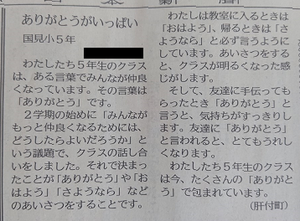 ありがとうがいっぱい
国見小5年
わたしたち5年生のクラス
は、ある言葉でみんなが仲良
くなっています。その言葉は
「ありがとう」です。
2学期の始めに「みんなが
もっと仲良くなるためには、
どうしたらよいだろうか」と
いう議題で、クラスの話し合
いをしました。それで決まっ
たことが「ありがとう」や「お
はよう」「さようなら」など
のあいさつをすることです。
わたしは教室に入るときは
「おはよう」、帰るときは「さ
ようなら」と必ず言うようにし
ています。あいさつをすると、
クラスが明るくなった感
じがします。
そして、友達に手伝っても
らったとき「ありがとう」と
言うと、気持ちがすっきりし
ます。友達に「ありがとう」
と言われると、とてもうれし
くなります。
わたしたち5年生のクラス
は今、たくさんの「ありがと
う」で包まれています。
(肝付町)